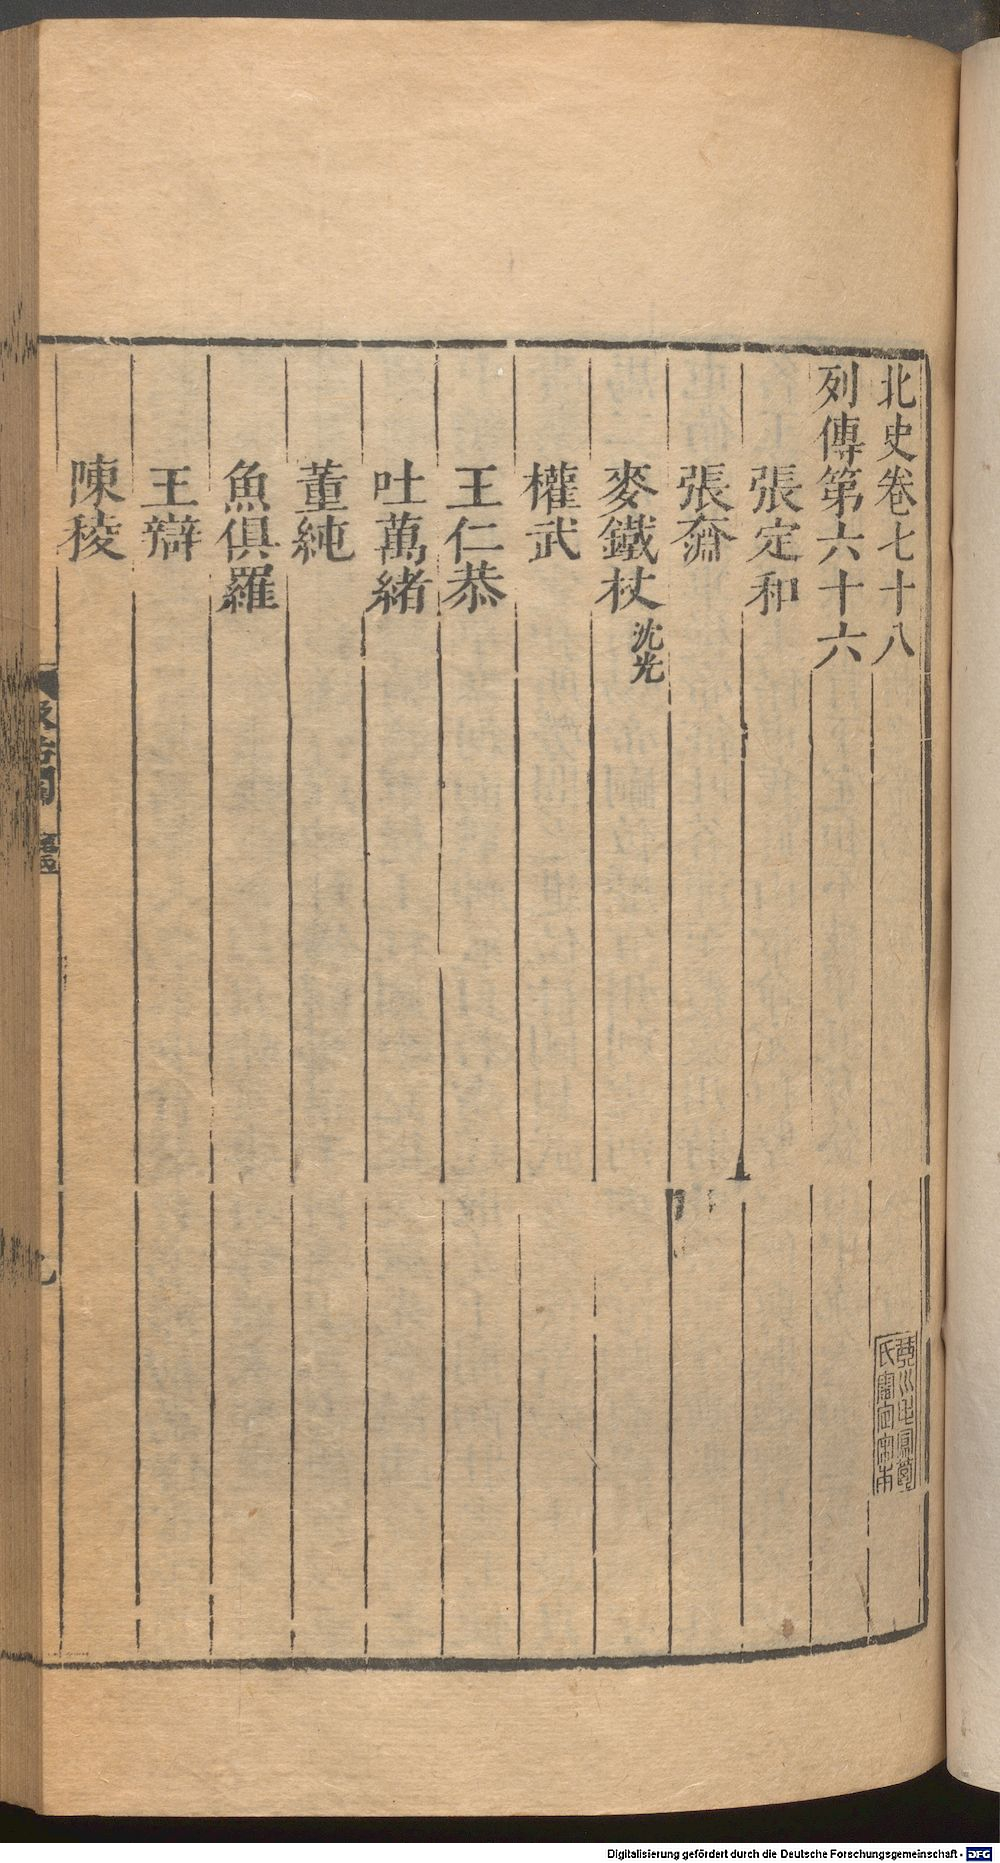 北史卷七十八
列傳第六十六
張定和
張奫
麥鐵杖 沈光
權武
王仁恭
吐萬緒
董純
魚俱羅
王辯
陳稜
汲古閣
九
琴川毛鳳苞氏審定宋本
Digitalisierung gefördert durch die Deutsche Forschungsgemeinschaft - DFG